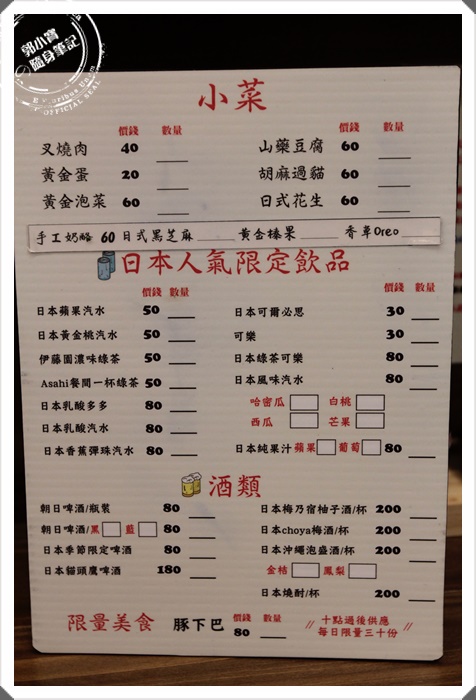 郭小寶
隨身筆記
OFFICIAL SEAL
小菜
價錢 數量 價錢 數量
叉燒肉 40 山藥豆腐 60
黃金蛋 20 胡麻過貓 60
黃金泡菜 60 日式花生 60
手工奶酪 60 日式黑芝麻 黃金榛果 香草Oreo
日本人氣限定飲品
價錢 數量 價錢 數量
日本蘋果汽水 50 日本可爾必思 30
日本黃金桃汽水 50 可樂 30
伊藤園濃味綠茶 50 日本綠茶可樂 80
Asahi餐間一杯綠茶 50 日本風味汽水 80
日本乳酸多多 80 哈密瓜 白桃
日本乳酸汽水 80 西瓜 芒果
日本香蕉彈珠汽水 80 日本純果汁 蘋果 葡萄 80
酒類
朝日啤酒/瓶裝 80 日本梅乃宿柚子酒/杯 200
朝日啤酒/黑 藍 80 日本choya梅酒/杯 200
日本季節限定啤酒 80 日本沖繩泡盛酒/杯 200
日本貓頭鷹啤酒 180 金桔 鳳梨
日本燒酎/杯 200
限量美食 豚下巴 價錢 數量 80
// 十點過後供應
每日限量三十份 //